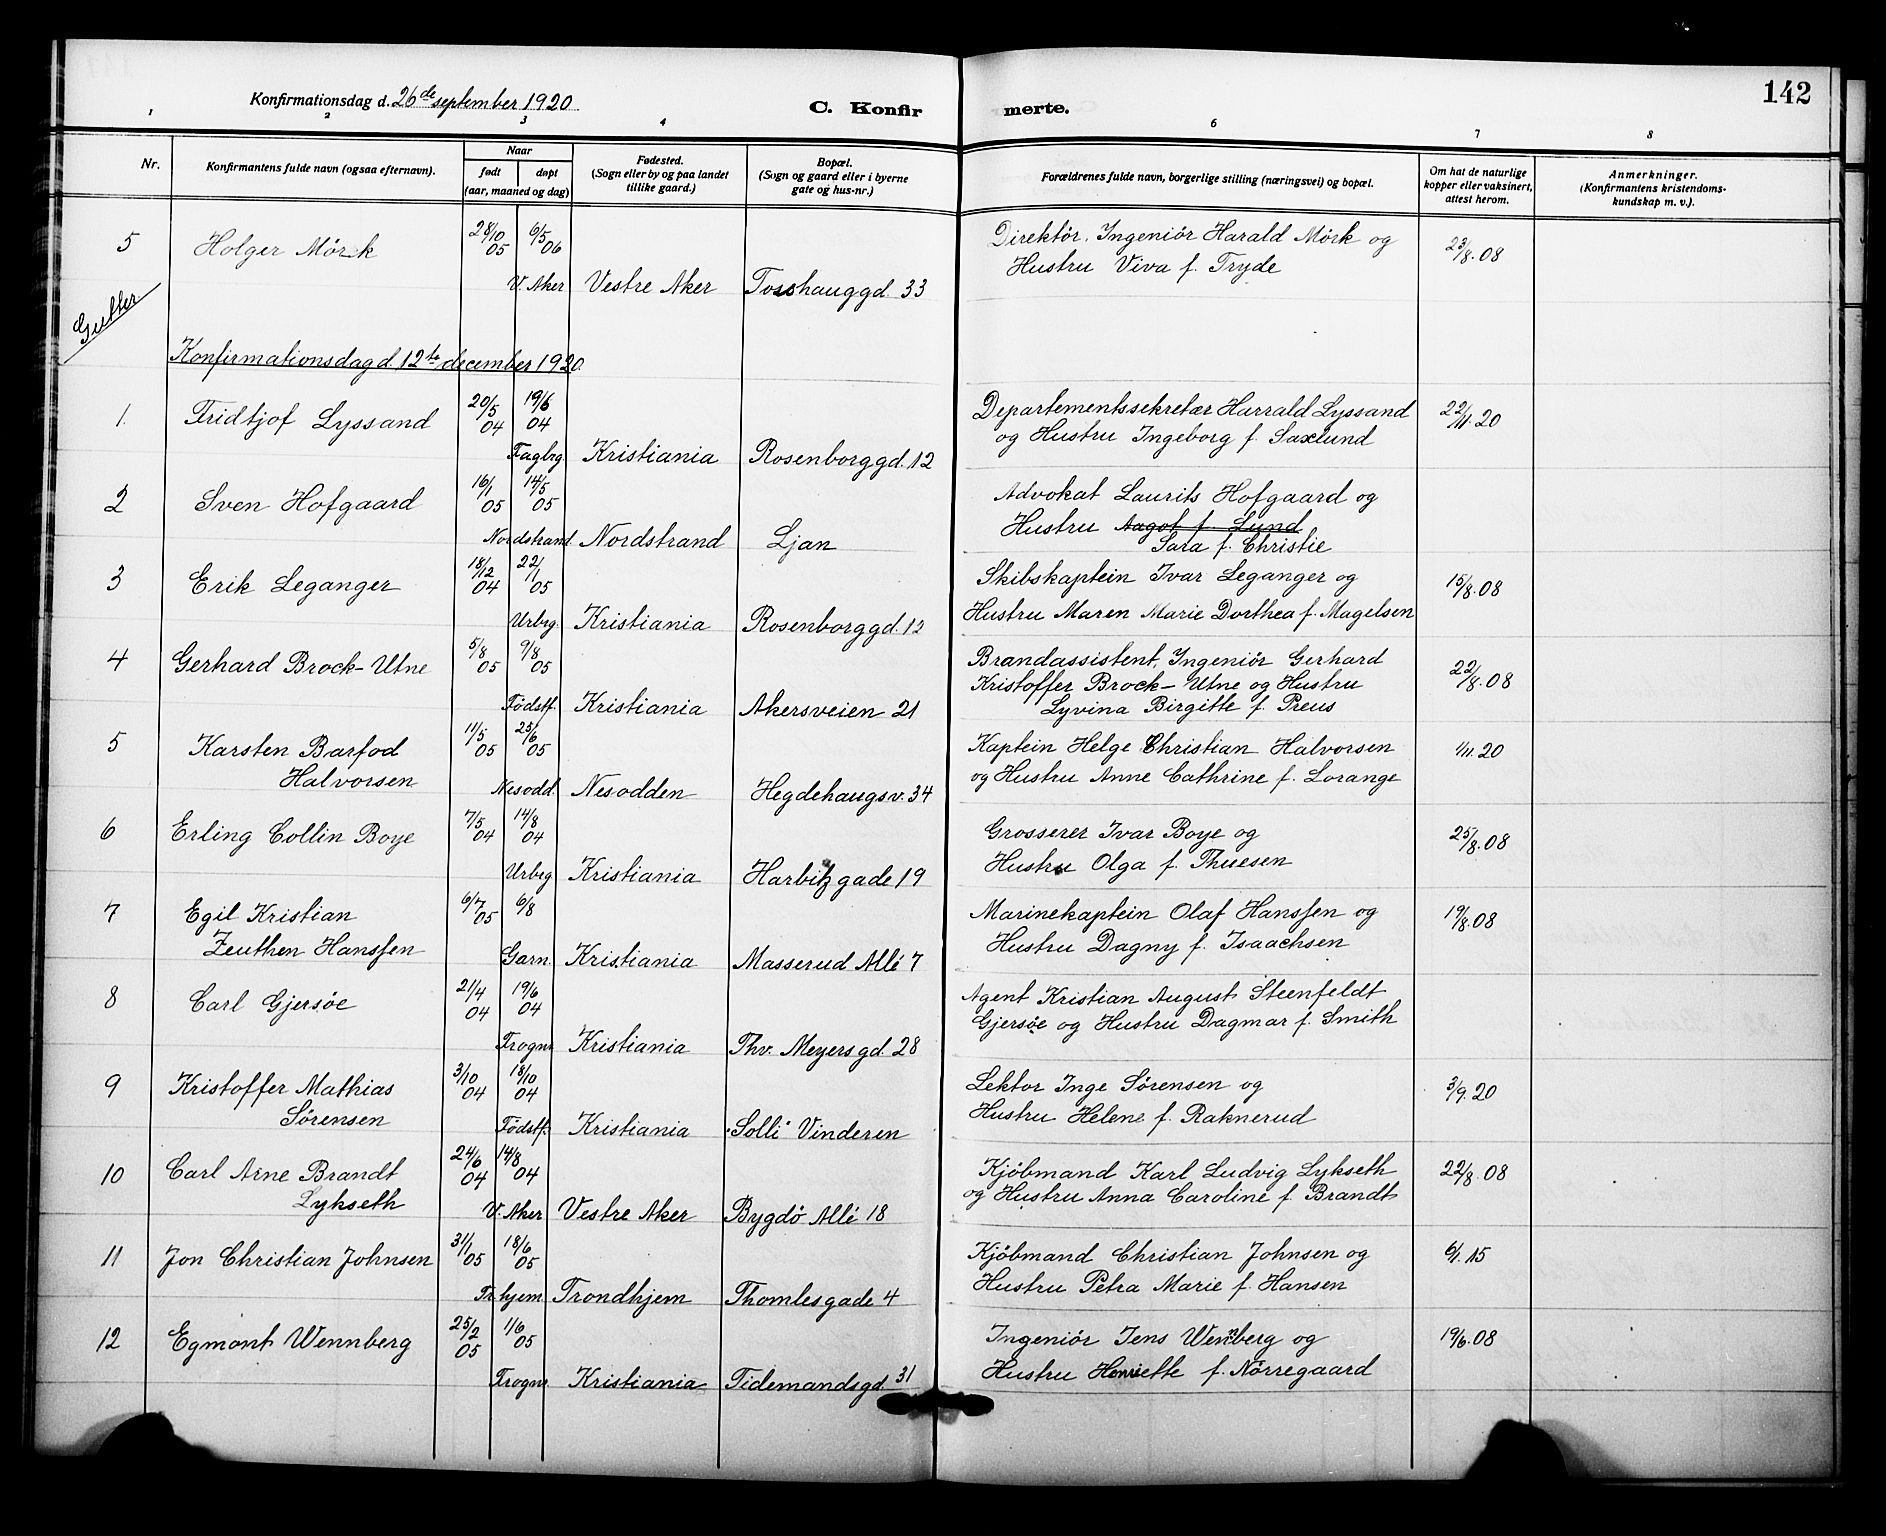 142
Konfirmationsdag d. 26de september 1920
C. Konfirmerte.
1 2 3 4 6 7 8
Nr.
Konfirmantens fulde navn (ogsaa efternavn).
Naar
født døpt
(aar, maaned og dag)
Fødested.
(Sogn eller by og paa landet
tillike gaard.)
Bopæl.
(Sogn og gaard eller i byerne
gate og hus-nr.)
Forældrenes fulde navn, borgerlige stilling (næringsvei) og bopæl.
Om hat de naturlige
kopper eller vaksinert,
attest herom.
Anmerkninger.
(Konfirmantens kristendoms-
kundskap m. v.).
5 Holger Mörk 28/10 05 6/5 06 Direktör, Ingeniör Harald Mörk og 23/8.08
Hustru Viva f. Tryde
V. Aker Vestre Aker Tosshauggd. 33
Gutter
Konfirmationsdag d. 12te december 1920.
1. Fridtjof Lyssand 20/5 04 19/6 04 Departementssekretær Harrald Lyssand 22/11.20
og Hustru Ingeborg f. Saxlund
Fagbrg. Kristiania Rosenborggd. 12
2 Sven Hofgaard 16/1 05 14/5 05 Advokat Laurits Hofgaard og
Hustru Aagot f. Lund
Nordstrand Nordstrand Ljan Sara f. Christie
3 Erik Leganger 18/12 04 22/1 05 Skibskaptein Ivar Leganger og 15/8.08
Urbrg. Kristiania Rosenborggd. 12 Hustru Maren Marie Dorthea f. Magelsen
4 Gerhard Brock-Utne 5/8 05 9/8 05 Brandassistent, Ingeniör Gerhard 22/8.08
Kristoffer Brock-Utne og Hustru
Födstf. Kristiania Akersveien 21 Lyvina Birgitte f. Preus
5 Karsten Barfod 11/5 05 25/6 05 Kaptein Helge Christian Halvorsen 1/11.20
Halvorsen og Hustru Anne Cathrine f. Lorange
Nesodd. Nesodden Hegdehaugsv. 34
6 Erling Collin Boye 7/5 04 14/8 04 Grosserer Ivar Boye og 25/8.08
Hustru Olga f. Thuesen
Urbrg Kristiania Harbitzgade 19
7 Egil Kristian 6/7 05 6/8 Marinekaptein Olaf Hanssen og 19/8.08
Zeuthen Hanssen Hustru Dagny f. Isaachsen
Garn. Kristiania Masserud Allé 7
8 Carl Gjersöe 21/4 04 19/6 04 Agent Kristian August Steenfeldt
Gjersöe og Hustru Dagmar f. Smith
Frogne Kristiania Thv. Meyersgd. 28
9 Kristoffer Mathias 3/10 04 18/10 04 Lektor Inge Sörensen og 3/9.20
Sörensen Hustru Helene f. Raknerud
Födstf. Kristiania "Solli" Vinderen
10 Carl Arne Brandt 24/6 04 14/8 04 Kjöbmand Karl Ludvig Lykseth 22/8.08
Lykseth og Hustru Anna Caroline f. Brandt
V. Aker Vestre Aker Bygdö Allé 18
11 Jon Christian Johnsen 31/1 05 18/6 05 Kjöbmand Christian Johnsen og 6/1.15
Hustru Petra Marie f. Hansen
Tr.hjem Trondhjem Thomlesgade 4
12 Egmont Wennberg 25/2 05 1/6 05 Ingeniör Jens Wennberg og 19/6.08
Hustru Henriette f. Nörregaard
Frogne Kristiania Tidemandsgd. 31